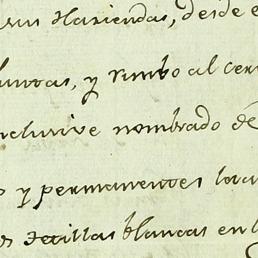 sus Haziendas, desde e
luntas, y rumbo al cerr
nclusive nombrado de
s y permanentes loca
es blancas en l